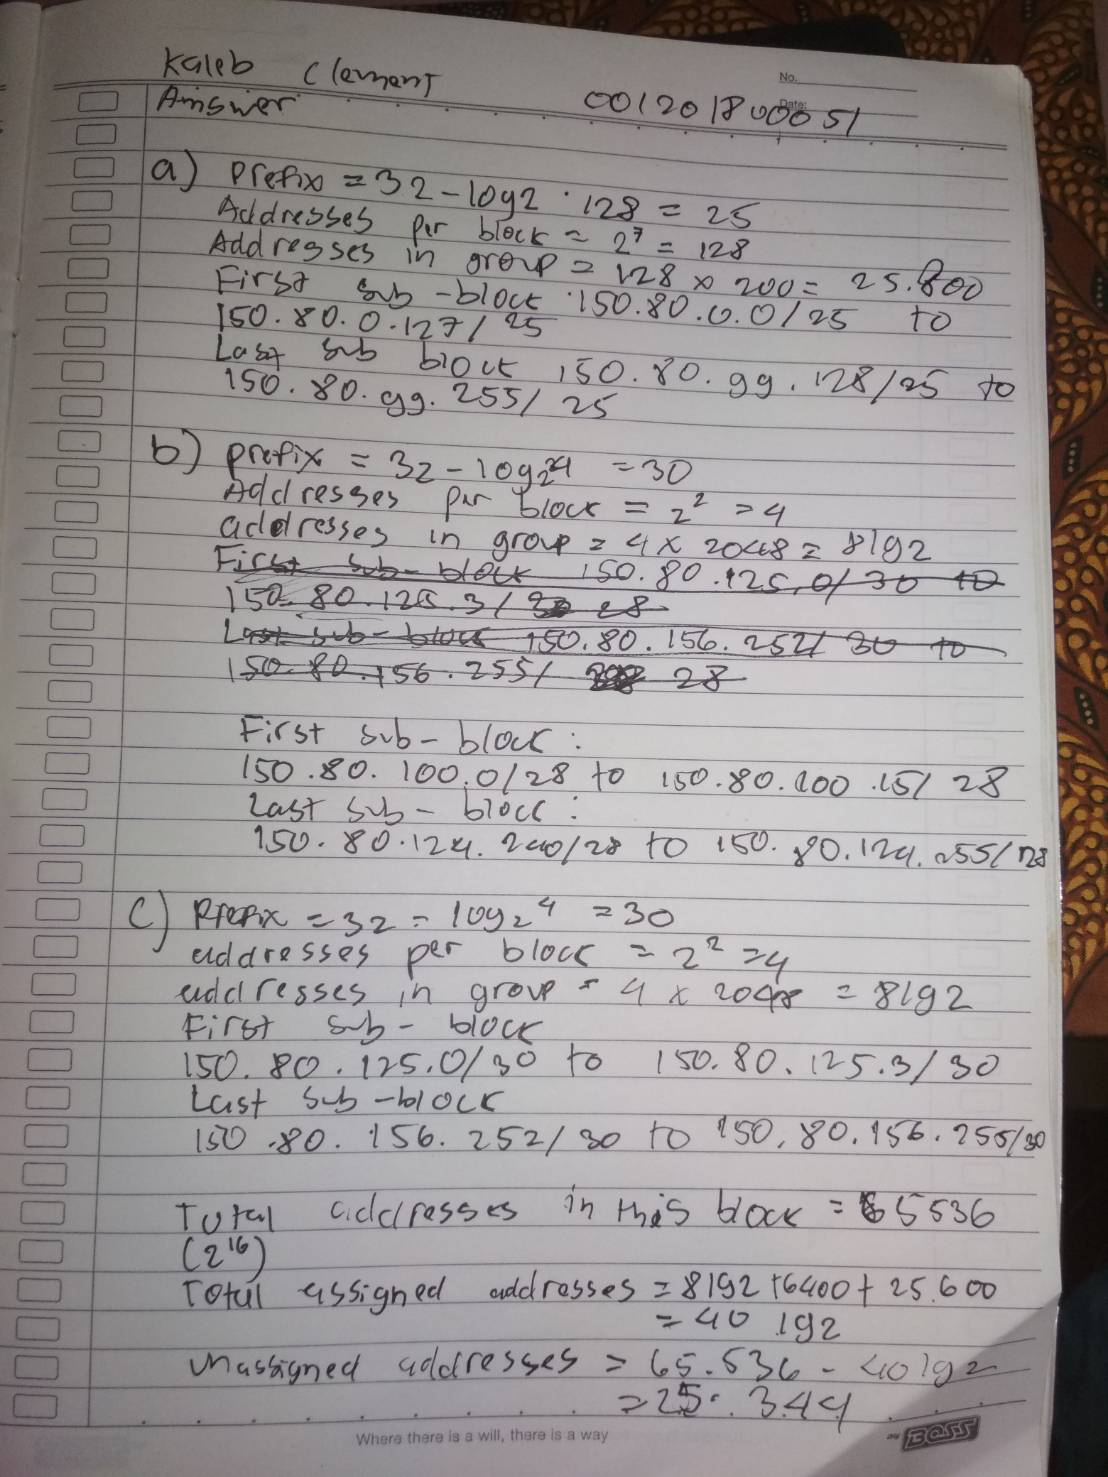 Kaleb Clement
No.
Answer
Date:
001201800051
a) Prefix = 32 - log2 · 128 = 25
Addresses per block = 2⁷ = 128
Addresses in group = 128 x 200 = 25.800
First sub-block · 150.80.0.0/25 to
150.80.0.127/25
Last sub block 150.80.99.128/25 to
150.80.99.255/25
b) prefix = 32 - log₂4 = 30
Addresses per block = 2² = 4
addresses in group = 4 x 2048 = 8192
First sub-block 150.80.125.0/30 to
150.80.125.3/ 28
Last sub-block 150.80.156.252/30 to
150.80.156.255/ 28
First sub-block :
150.80.100.0/28 to 150.80.100.15/28
Last sub-block :
150.80.124.240/28 to 150.80.124.255/28
C) Prefix = 32 - log₂4 = 30
addresses per block = 2² = 4
addresses in group = 4 x 2048 = 8192
First sub-block
150.80.125.0/30 to 150.80.125.3/30
Last sub-block
150.80.156.252/30 to 150.80.156.255/30
Total addresses in this block = 65536
(2¹⁶)
Total assigned addresses = 8192 + 6400 + 25.600
= 40 192
unassigned addresses = 65.536 - 40192
= 25.344
Where there is a will, there is a way
BOSS